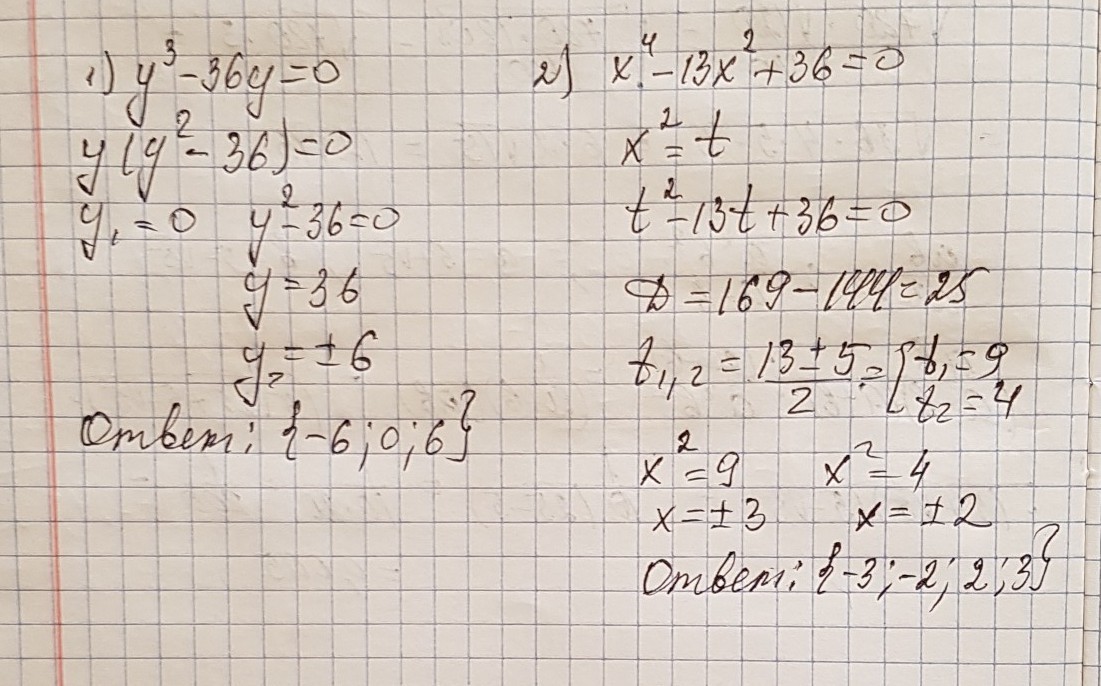 1) y³-36y=0
y(y²-36)=0
y₁=0 y²-36=0
y=36
y₂=±6
Ответ: {-6; 0; 6}
2) x⁴-13x²+36=0
x²=t
t²-13t+36=0
D=169-144=25
t₁,₂=(13±5)/2=[t₁=9
t₂=4
x²=9 x²=4
x=±3 x=±2
Ответ: {-3; -2; 2; 3}